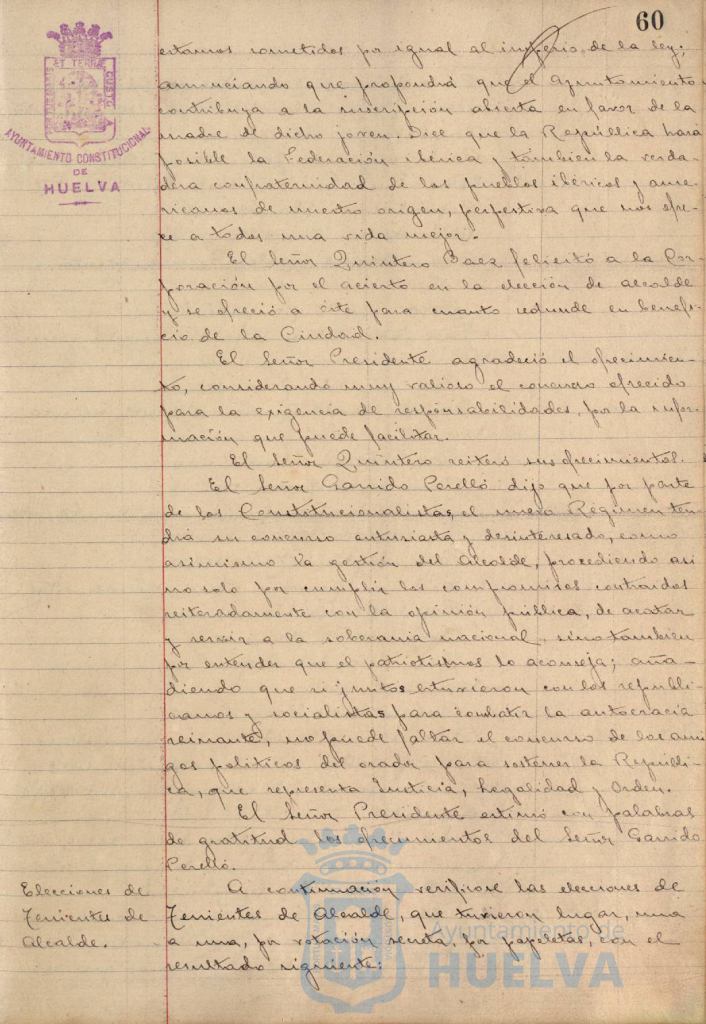 60
ET TERRÆ CUSTO
AYUNTAMIENTO CONSTITUCIONAL
DE
HUELVA
estamos sometidos por igual al imperio de la ley;
anunciando que propondrá que el Ayuntamiento
contribuya a la suscripción abierta en favor de la
madre de dicho joven. Dice que la República hará
posible la Federación ibérica y tambien la verda-
dera confraternidad de los pueblos ibéricos y ame-
ricanos de nuestro origen, perpectiva que nos ofre-
ce a todos una vida mejor.
El Señor Quintero Baez felicitó a la Cor-
poración por el acierto en la elección de alcalde
y se ofreció a éste para cuanto redunde en benefi-
cio de la Ciudad.
El Señor Presidente agradeció el ofrecimien-
to, considerando muy valioso el concurso ofrecido
para la exigencia de responsabilidades, por la infor-
mación que puede facilitar.
El Señor Quintero reiteró sus ofrecimientos.
El Señor Garrido Perelló dijo que por parte
de los Constitucionalistas, el nuevo Regimen ten-
drá su concurso entusiasta y desinteresado, como
asimismo la gestión del Alcalde, procediendo asi
no solo por cumplir los compromisos contraidos
reiteradamente con la opinión pública, de acatar
y servir a la soberania nacional, sino tambien
por entender que el patriotismo lo aconseja; aña-
diendo que si juntos estuvieron con los republi-
canos y socialistas para combatir la autocracia
reinante, no puede faltar el concurso de los ami-
gos politicos del orador para sostener la Repúbli-
ca, que representa Justicia, Legalidad y Orden.
El Señor Presidente estimó con palabras
de gratitud los ofrecimientos del Señor Garrido
Perelló.
Elecciones de
Tenientes de
Alcalde.
A continuación verificose las elecciones de
Tenientes de Alcalde, que tuvieron lugar, una
a una, por votación secreta, por papeletas, con el
resultado siguiente:
Ayuntamiento de
HUELVA